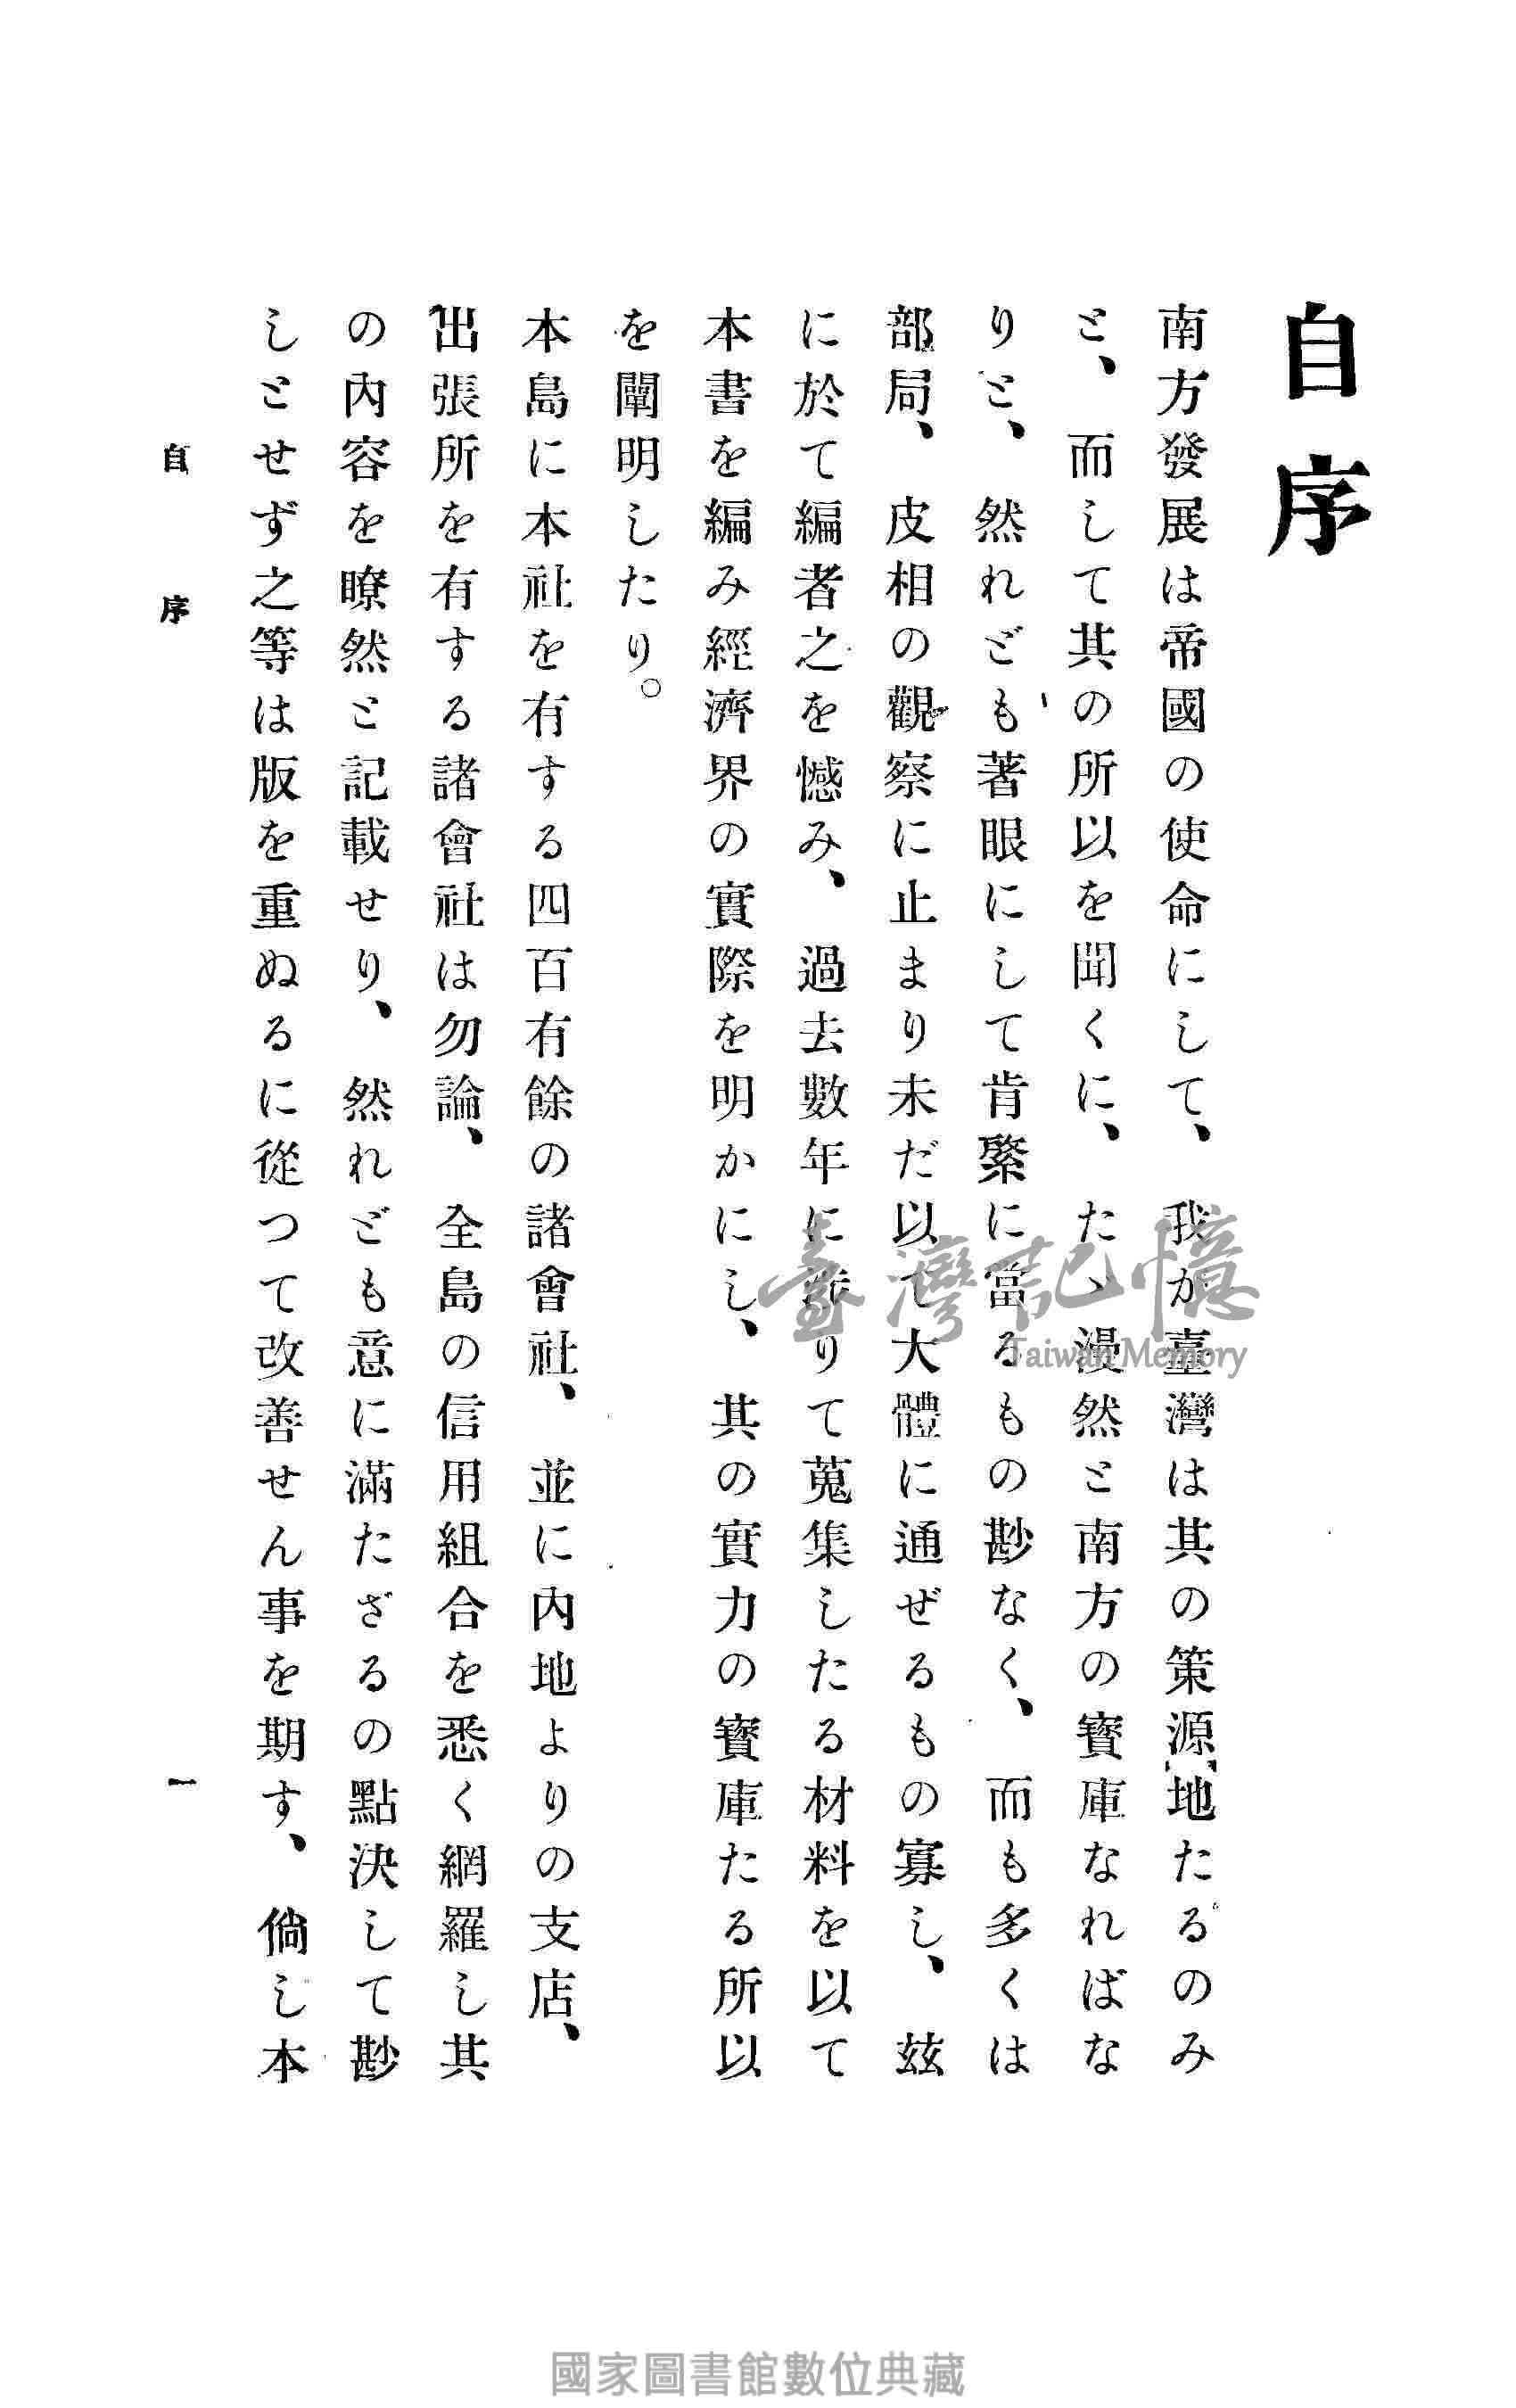 自序
南方發展は帝國の使命にして、我が臺灣は其の策源地たるのみ
と、而して其の所以を聞くに、たゞ漫然と南方の寳庫なればな
りと、然れども著眼にして肯綮に當るもの尠なく、而も多くは
部局、皮相の觀察に止まり未だ以て大體に通ぜるもの寡し、玆
に於て編者之を憾み、過去數年に渉りて蒐集したる材料を以て
本書を編み經濟界の實際を明かにし、其の實力の寳庫たる所以
を闡明したり。
本島に本社を有する四百有餘の諸會社、並に内地よりの支店、
出張所を有する諸會社は勿論、全島の信用組合を悉く網羅し其
の內容を瞭然と記載せり、然れども意に滿たざるの點決して尠
しとせず之等は版を重ぬるに從つて改善せん事を期す、倘し本
自序
一
臺灣記憶
Taiwan Memory
國家圖書館數位典藏